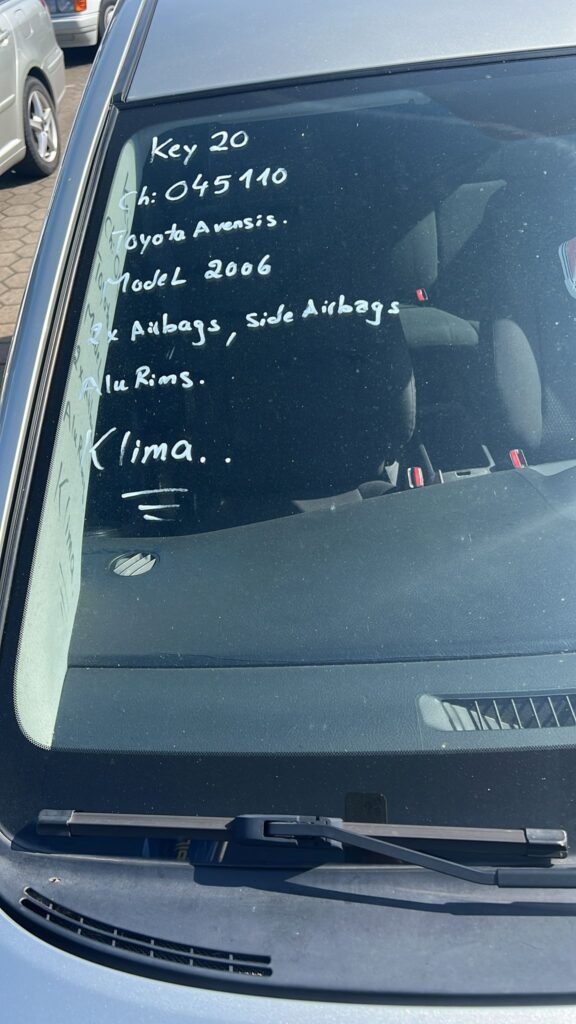 Key 20
Ch: 045110
Toyota Avensis.
Model 2006
2x Airbags, Side Airbags
Alu Rims.
Klima..